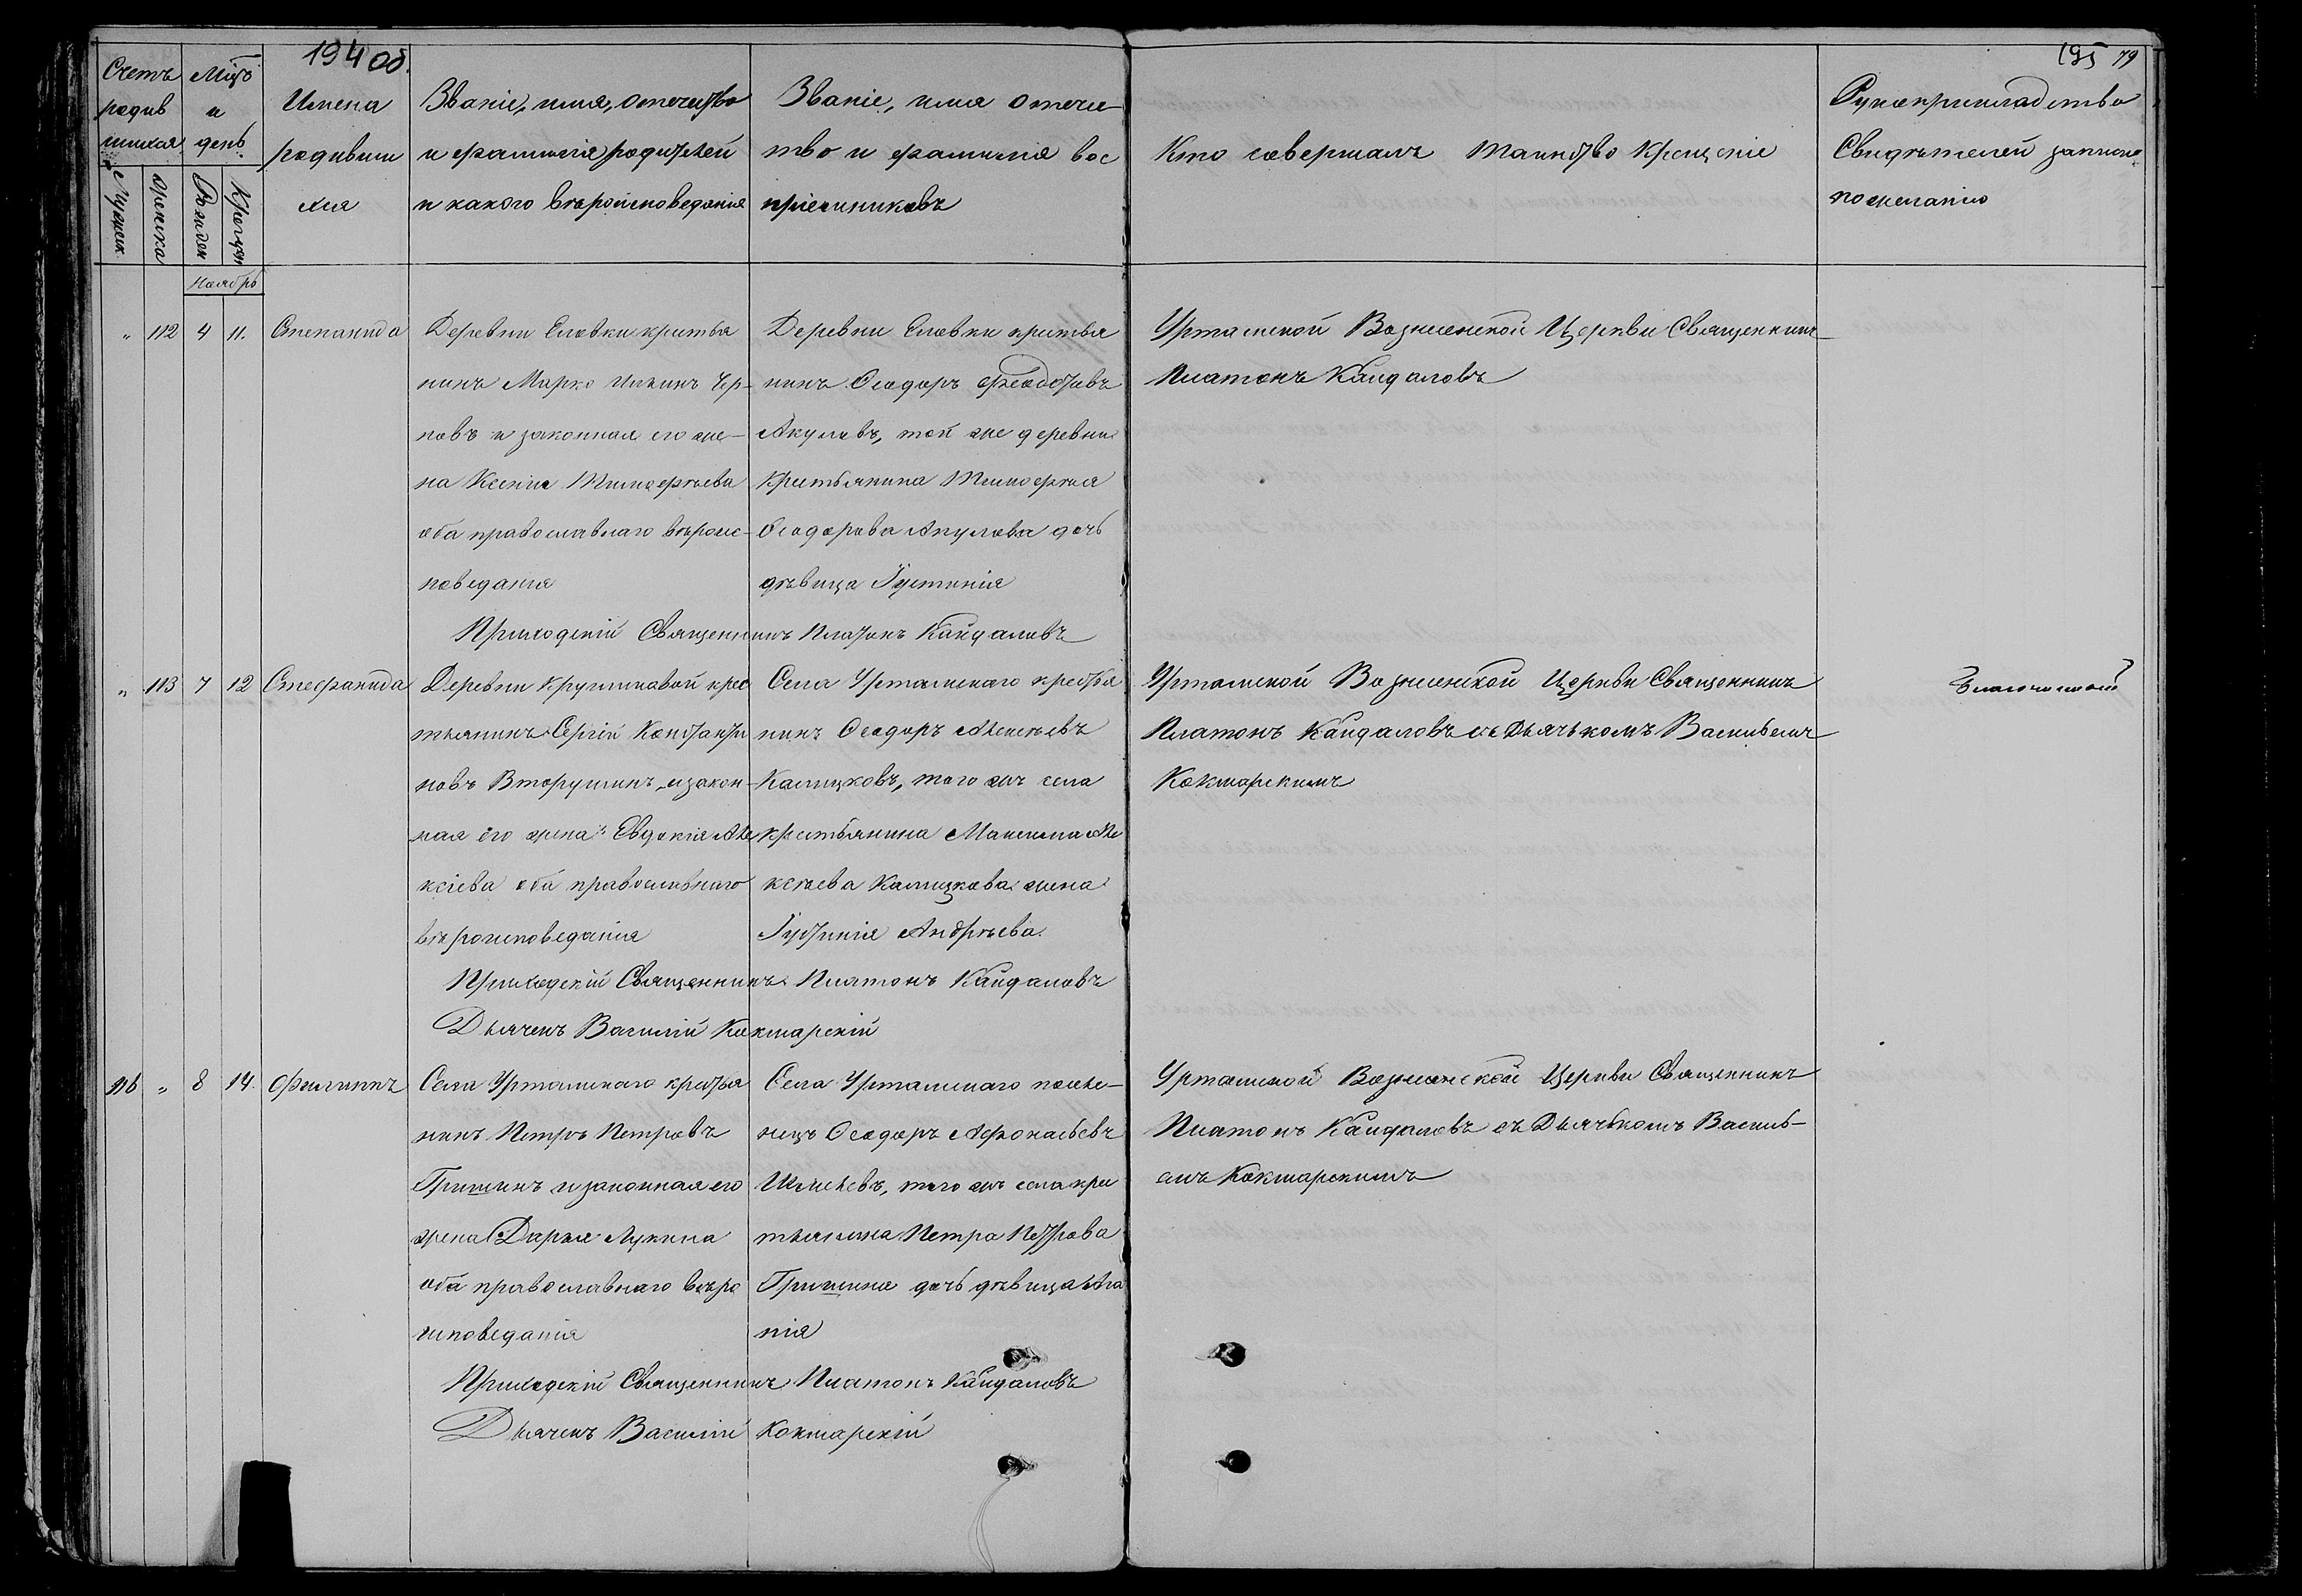 194 об.
195 79
Счетъ
родив
шихся
Мужеск.
Женска
Мцъ
и
день
Рожден
Крещен
Имена
родивши
хся
Званіе, имя, отечество
и фамилія родителей
и какого вѣроисповеданія
Званіе, имя отече-
тво и фамилія вос
пріемниковъ
Кто совершалъ таинство крещеніе
Рукоприкладство
Свидѣтелей записи
по желанію
Ноябрь
" 112 4 11. Степанида
Деревни Еловки кристья
нинъ Марко Ильинъ Чер-
новъ и законная его же-
на Ксенія Тимофѣева
оба православнаго вѣроис-
поведанія
Деревни Еловки кристья
нинъ Ѳеодоръ Федотовъ
Акуловъ, той же деревни
кристьянина Тимофея
Ѳеодорова Акулова дочь
дѣвица Іустинія
Уртамской Вознесенской Церкви Священникъ
Платонъ Кайдаловъ
Приходскій Священникъ Платонъ Кайдаловъ
" 113 7 12 Стефанида
Деревни Крутиковой крес
тьянинъ Сергій Константи
новъ Вторушинъ и закон-
ная его жена Евдокія Але
ксіева оба православнаго
вѣроисповеданія
Села Уртамскаго крестья
нинъ Ѳеодоръ Алексѣевъ
Калицковъ, того же села
крестьянина Максима Але
ксѣева Калицкова жена
Іустинія Андрѣева.
Уртамской Вознесенской Церкви Священникъ
Платонъ Кайдаловъ съ Дьячькомъ Васильемъ
Кокшарскимъ
Приходскій Священникъ Платонъ Кайдаловъ
Дьячекъ Василій Кокшарскій
116 " 8 14. Филиппъ
Села Уртамскаго крестья
нинъ Петръ Петровъ
Гришинъ и законная его
жена Дарья Лукина
оба православнаго вѣро
исповеданія
Села Уртамскаго поселе-
нецъ Ѳеодоръ Афонасьевъ
того же села кре
тьянина Петра Петрова
Гришина дочь дѣвица Ага
пія
Уртамской Вознесенской Церкви Священникъ
Платонъ Кайдаловъ съ Дьячькомъ Василь-
емъ Кокшарскимъ
Приходскій Священникъ Платонъ Кайдаловъ
Дьячекъ Василій Кокшарскій